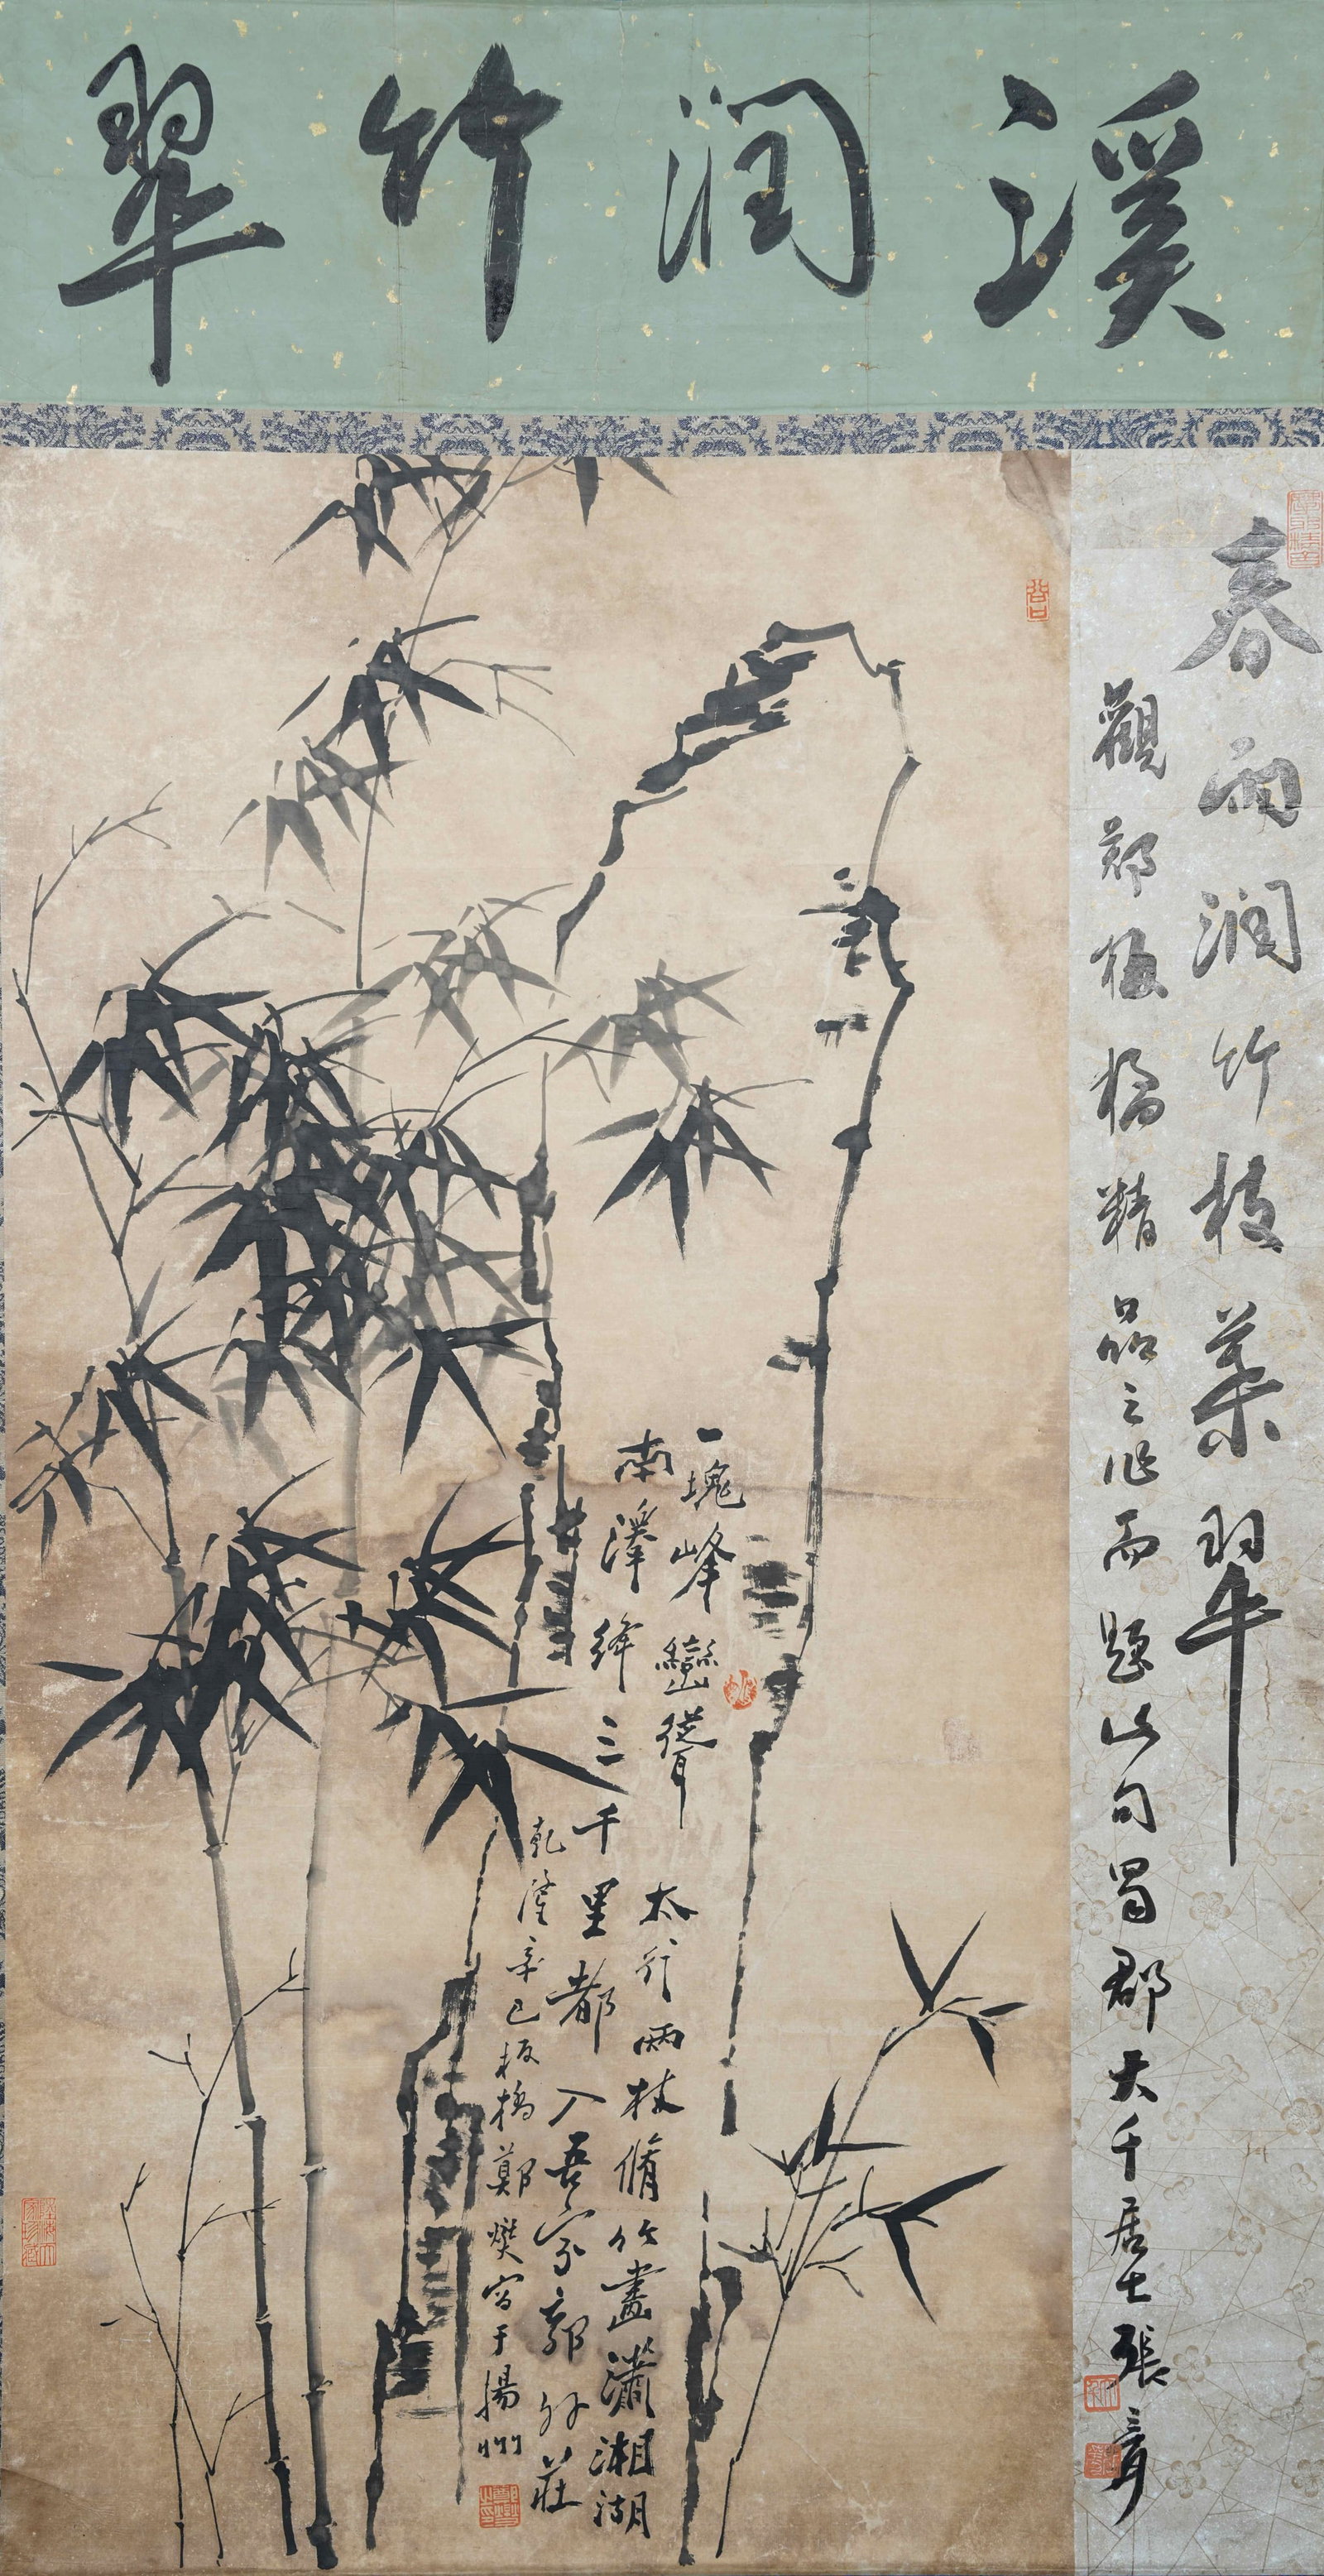 溪潤竹翠
春雨潤竹枝葉翠
觀鄭板橋精品之作而題此句蜀郡大千居士張爰
谷口
一塊峰巒聳太行兩枝脩竹畫瀟湘湖
南澤絳三千里都入吾家郭外莊
乾隆辛巳板橋鄭燮寫于揚州
鄭燮之印